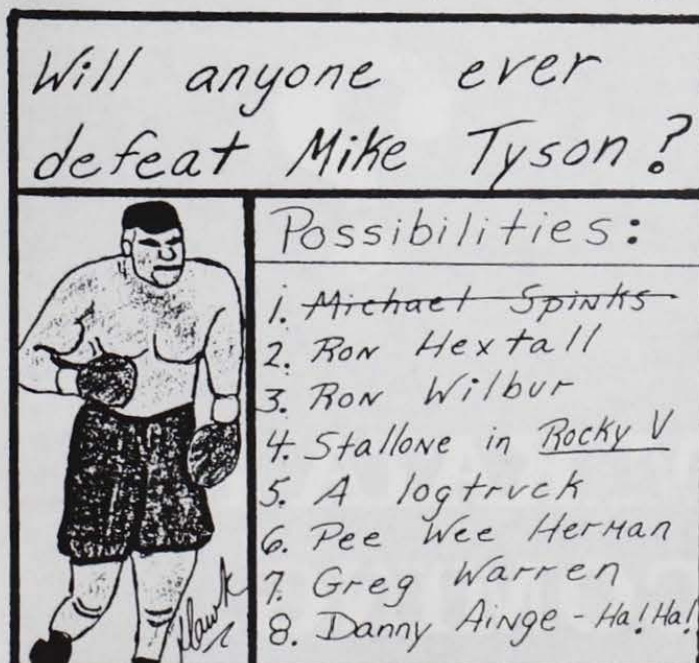 Will anyone ever
defeat Mike Tyson?
Possibilities:
1. Michael Spinks
2. Ron Hextall
3. Ron Wilbur
4. Stallone in Rocky V
5. A logtruck
6. Pee Wee Herman
7. Greg Warren
8. Danny Ainge - Ha! Ha!
Hawk